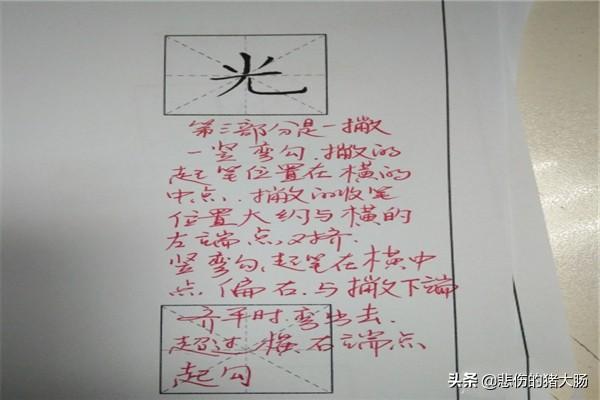 光
第三部分是一撇
一竖弯勾.撇的
起笔位置在横的
中点.撇的收笔
位置大约与横的
左端点对齐.
竖弯勾,起笔在横中
点偏右.与撇下端
齐平时.弯出去.
超过横右端点
起勾
头条 @悲伤的猪大肠